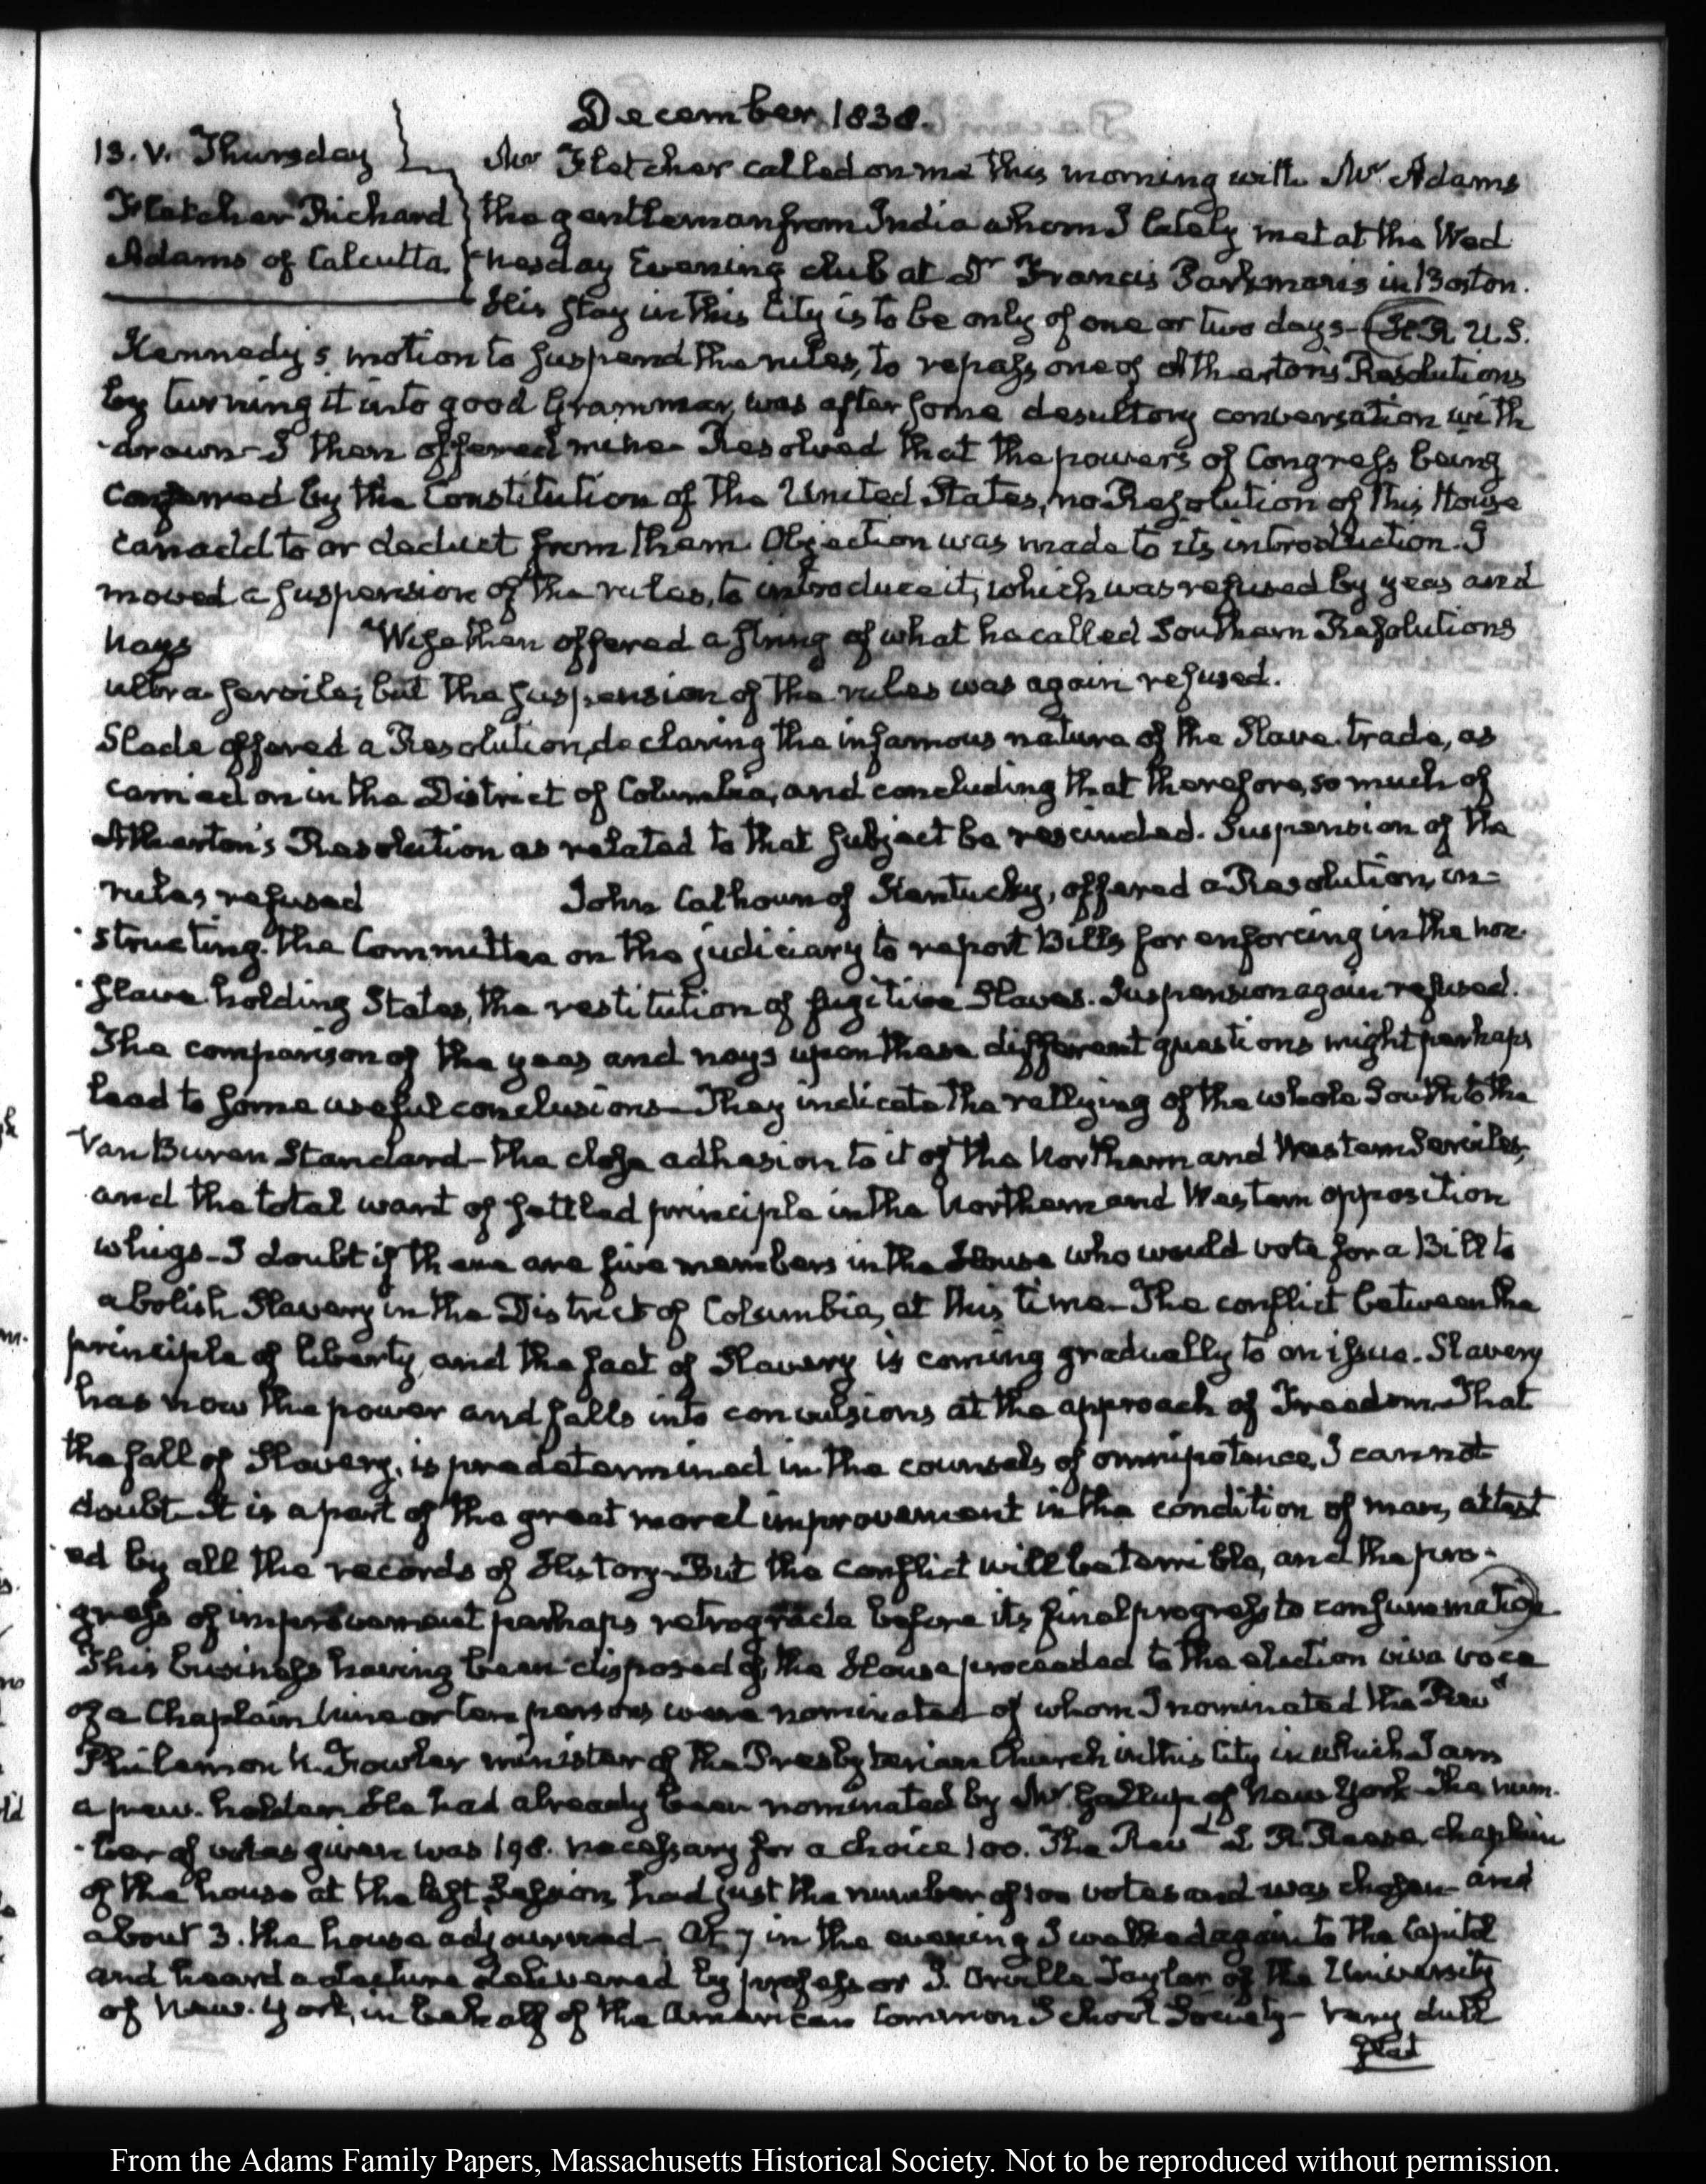 December 1838.
13. V. Thursday
Fletcher Richard
Adams of Calcutta.
Mr Fletcher called on me this morning with Mr Adams
the gentleman from India whom I lately met at the Wed
nesday Evening club at Dr Francis Parkman's in Boston.
His stay in this City is to be only of one or two days- H.R. U.S.
Kennedy's motion to suspend the rules, to repass one of Atherton's Resolutions
by turning it into good Grammar, was after some desultory conversation with
-drawn- I then offered mine- Resolved that the powers of Congress being
conferred by the Constitution of the United States, no Resolution of this House
can add to or deduct from them. Objection was made to its introduction. I
moved a suspension of the rules, to introduce it, which was refused by yeas and
nays Wise then offered a string of what he called Southern Resolutions
ultra-servile; but the suspension of the rules was again refused.
Slade offered a Resolution, declaring the infamous nature of the Slave-trade, as
carried on in the District of Columbia, and concluding that therefore, so much of
Atherton's Resolution as related to that subject be rescinded. Suspension of the
rules refused John Calhoun of Kentucky, offered a Resolution, in-
-structing the Committee on the judiciary to report Bills for enforcing in the non-
-slave-holding States, the restitution of fugitive Slaves. Suspension again refused.
The comparison of the yeas and nays upon these different questions might perhaps
lead to some useful conclusions- They indicate the rallying of the whole South to the
Van Buren Standard- the close adhesion to it of the Northern and Western Serviles,
and the total want of settled principle in the Northern and Western opposition
whigs- I doubt if there are five members in the House who would vote for a Bill to
abolish Slavery in the District of Columbia, at this time- The conflict between the
principle of liberty, and the fact of Slavery is coming gradually to an issue. Slavery
has now the power and falls into convulsions at the approach of Freedom- That
the fall of Slavery, is predetermined in the counsels of omnipotence, I cannot
doubt- It is a part of the great moral improvement in the condition of man, attest
-ed by all the records of History- But the conflict will be terrible, and the pro-
-gress of improvement perhaps retrograde before its final progress to consummation
This business having been disposed of, the House proceeded to the election viva voce
of a Chaplain nine or ten persons were nominated of whom I nominated the Revd
Philemon H. Fowler minister of the Presbyterian Church in this City in which I am
a pew-holder- He had already been nominated by Mr Gallup of New York- The num-
-ber of votes given was 198. necessary for a choice 100. The Revd L. R. Reese, chaplain
of the house at the last Session, had just the number of 100 votes and was chosen- and
about 3. the house adjourned- At 7 in the evening I walked again to the Capitol
and heard a lecture delivered by professor J. Orville Taylor of the University
of New-York, in behalf of the American Common School Society- Very dull
flat
From the Adams Family Papers, Massachusetts Historical Society. Not to be reproduced without permission.